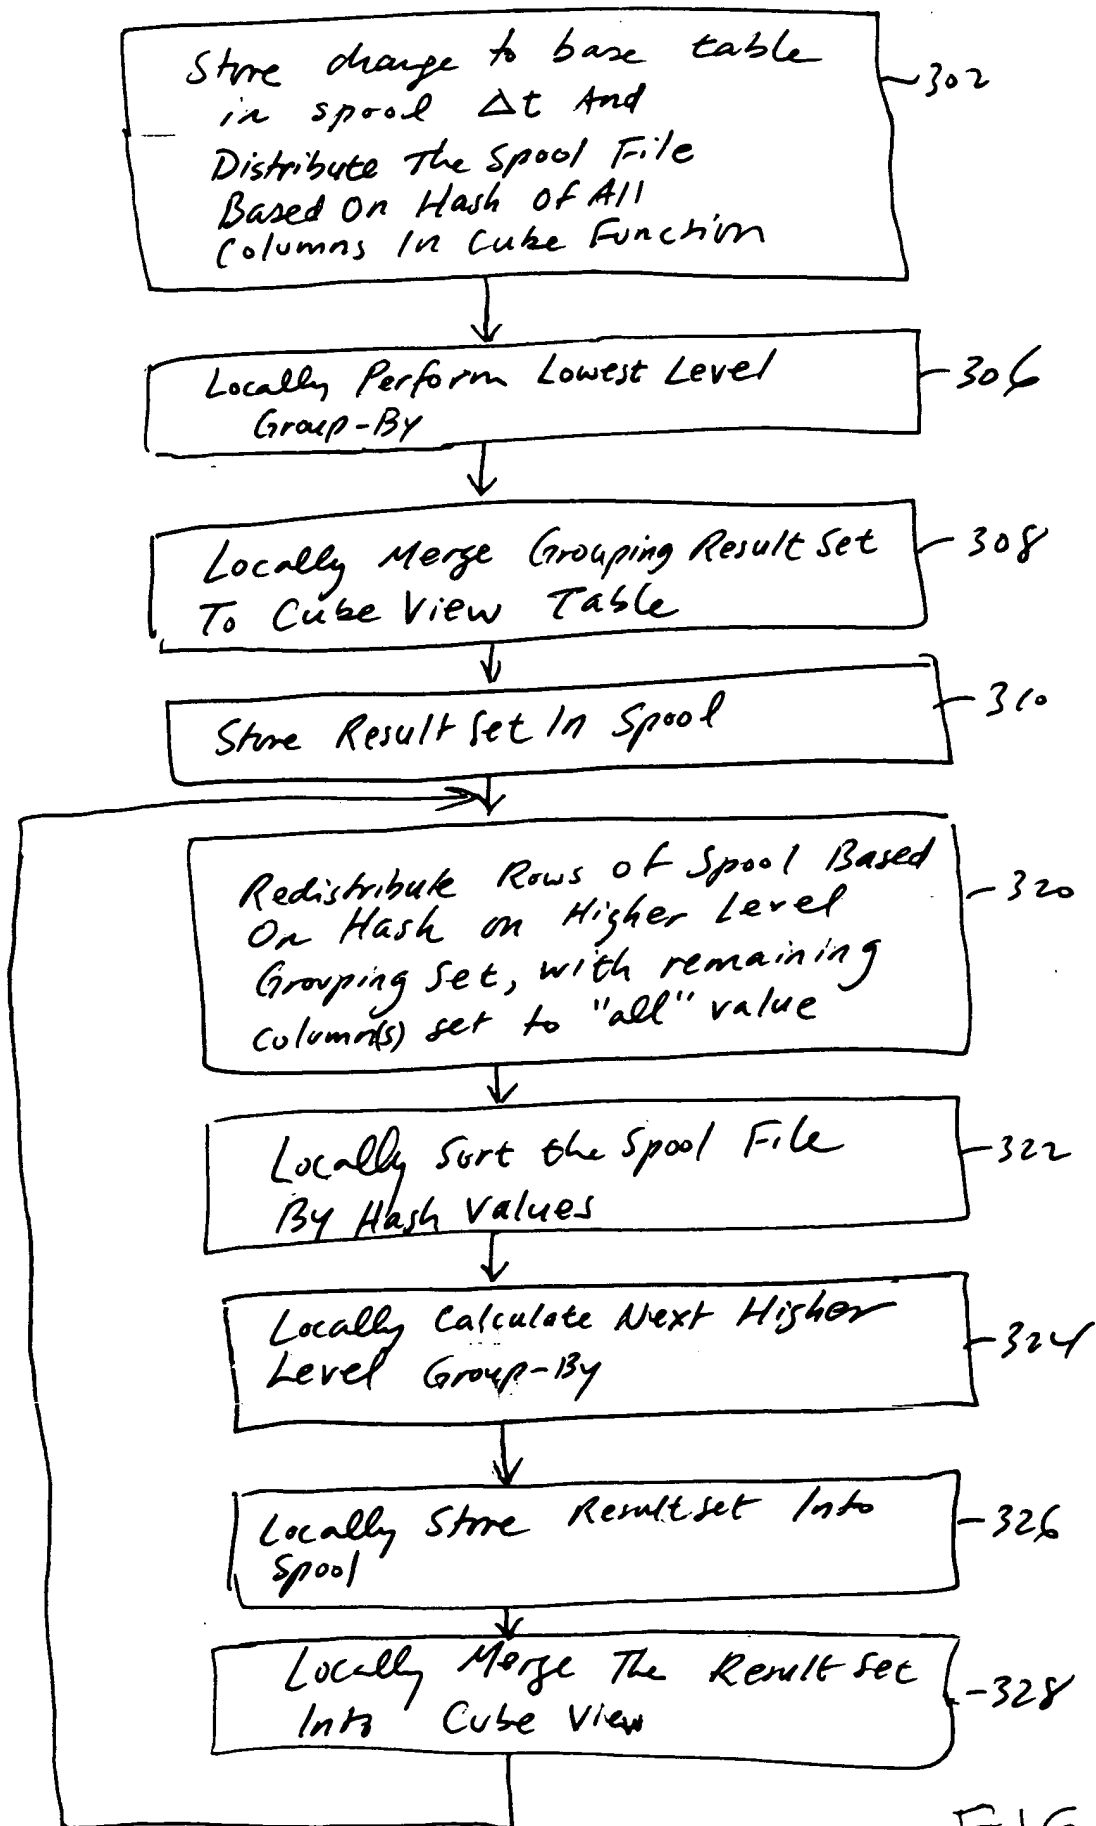 Store change to base table
in spool Δt And
Distribute The Spool File
Based On Hash of All
Columns In Cube Function
302
Locally Perform Lowest Level
Group-By
306
Locally Merge Grouping Result Set
To Cube View Table
308
Store Result Set In Spool
310
Redistribute Rows of Spool Based
On Hash on Higher Level
Grouping Set, with remaining
column(s) set to "all" value
320
Locally Sort the Spool File
By Hash Values
322
Locally Calculate Next Higher
Level Group-By
324
Locally Store Result set Into
Spool
326
Locally Merge The Result Set
Into Cube View
328
FIG